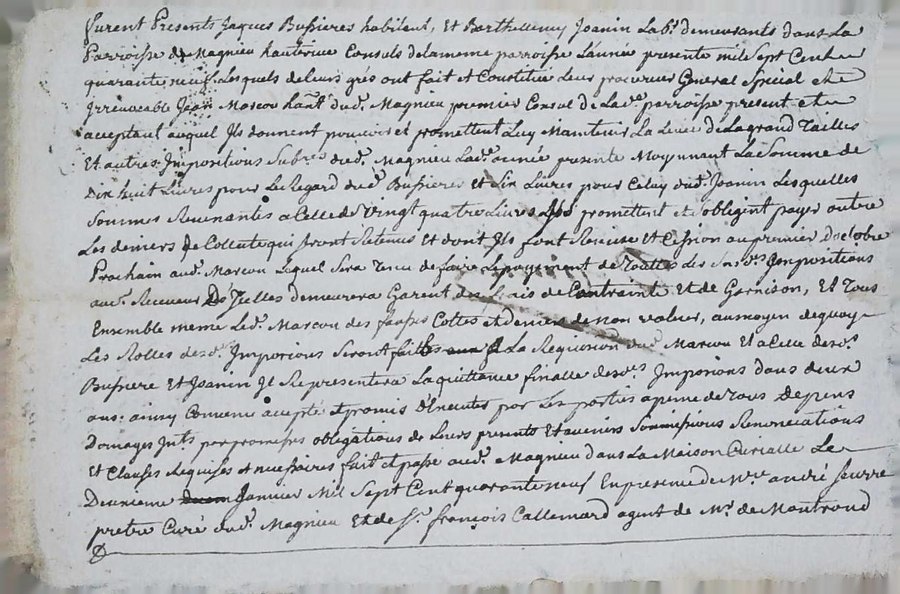 furent Presents Jaques Bussieres habitant, Et Barthelemy Joanin Labr. demeurants dans La
Parroisse de Magnieu hauterive Consuls delameme parroisse L'année presente mile Sept Cent
quarante neuf. Lesquels deleurs gres ont fait et Constitue Leur procureur General Special et
Irrevocable Jean Marcou dud. Magnieu premier Consul de Lad. parroisse present et
acceptant auquel Ils donnent pouvoir et promettent Luy Maintenir La Levée de Lagrand Tailles
Et autres Impositions dud. Magnieu Lad. année presente Moyennant La Somme de
Dix huit Livres pour Le Regard dud. Bussieres et Six Livres pour Celuy dud. Joanin Lesquelles
Sommes Revenantes a Celle de Vingt quatre Livres Ils promettent et obligent payer outre
Les deniers de Collecte qui seront Retenus Et dont Ils font Remise et Cession au premier Doctobre
Prochain aud. Marcou Lequel Sera Tenu de faire Lepayement de Toutes Les Susds. Impositions
aux. Receveurs D'Icelles demeurera Garent des frais de Contrainte Et de Garnison, Et Tous
Ensemble meme Led. Marcou des fausses Cottes et deniers de non valeur, aumoyen dequoy
Les Rolles desd. Imporions Seront faittes a La Requision dud. Marcou Et a Celle desd.
Bussiere Et Joanin Il Representera Laquittance finalle desds. Imporions dans deux
ans. ainsy Convenu accepté et promis D'Executer par Les parties apeine de Tous Depens
Domages Ints. par promesses obligations de Leurs presents Et avenirs Soumissions Renonciations
Et Clauses Requises et necessaires fait et passé aud. Magnieu dans La Maison Curialle Le
Deuxieme Janvier Mil Sept Cent quarante neuf En presence de Mre. andré feurre
pretre Curé dud. Magnieu Et de Sr. françois Callemard agent de Mr. de Montrond